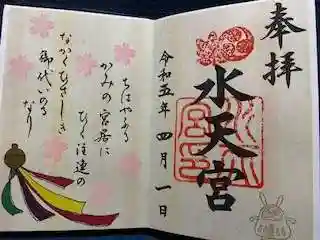 奉拝
水天宮
令和五年 四月 一日
ちはやふる
かみの宮居に
ひく注連の
ながくひさしき
御代いのる
なり